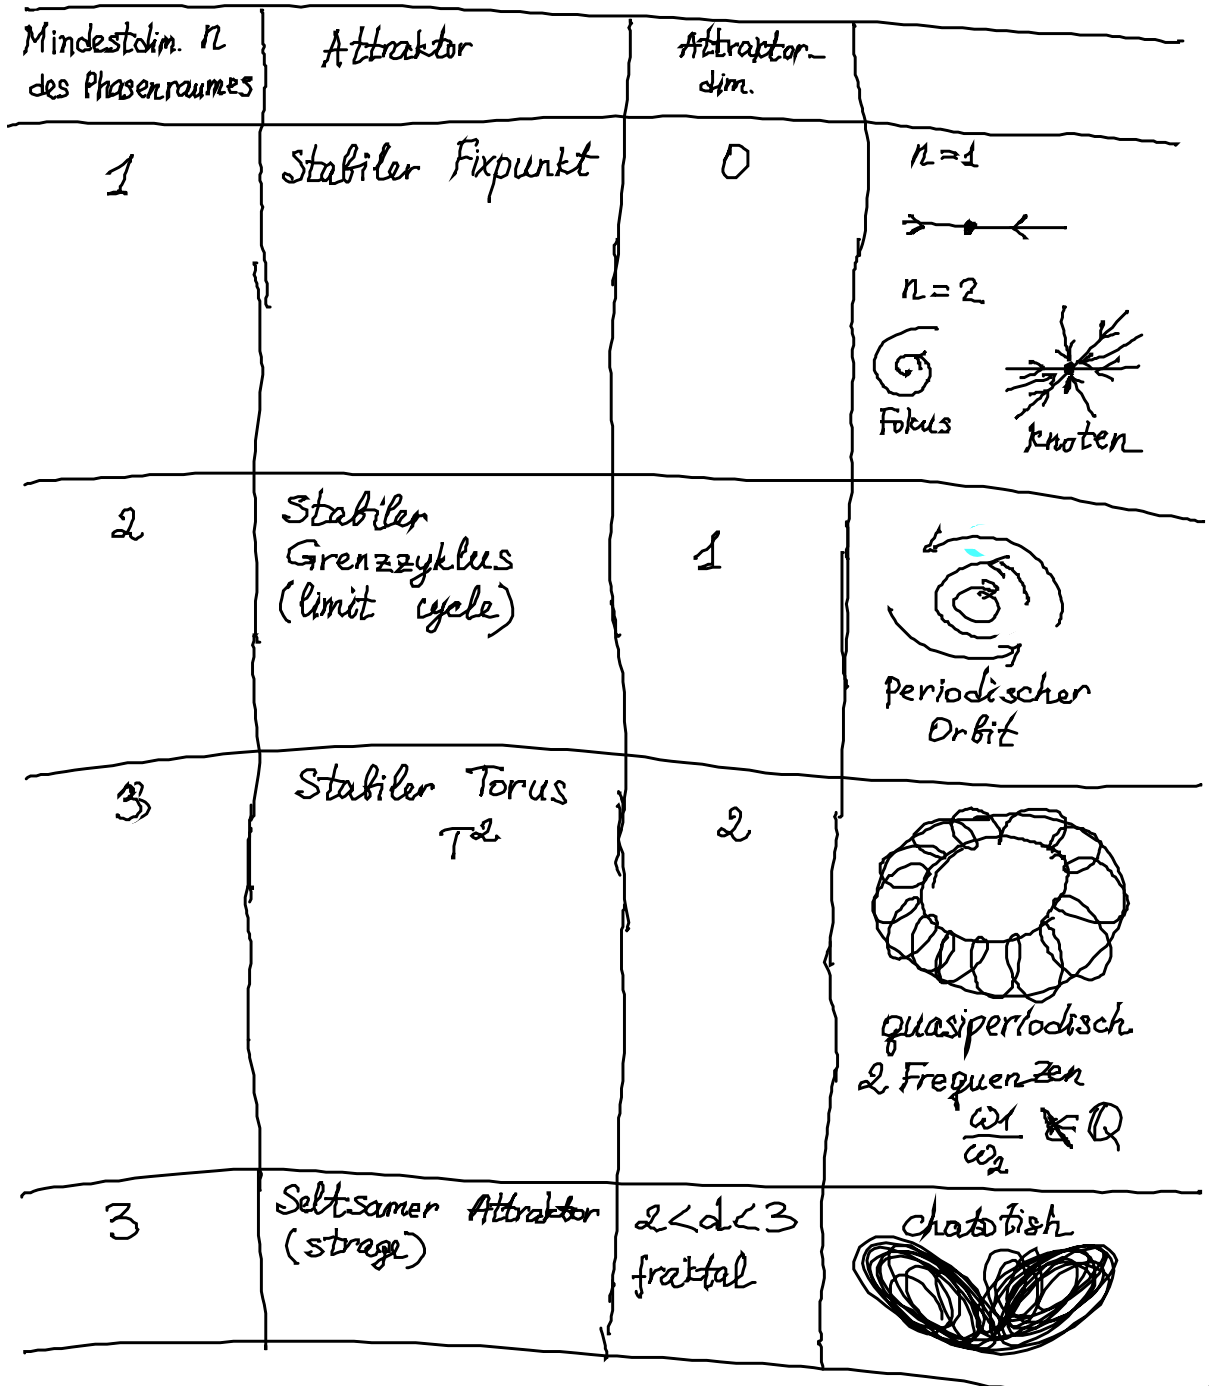 Mindestdim. n
des Phasenraumes
Attraktor
Attraktor-
dim.
1
Stabiler Fixpunkt
0
n=1
n=2
Fokus
Knoten
2
Stabiler
Grenzzyklus
(limit cycle)
1
Periodischer
Orbit
3
Stabiler Torus
T²
2
quasiperiodisch
2 Frequenzen
ω1/ω2 ∉ Q
3
Seltsamer Attraktor
(strage)
2<d<3
fraktal